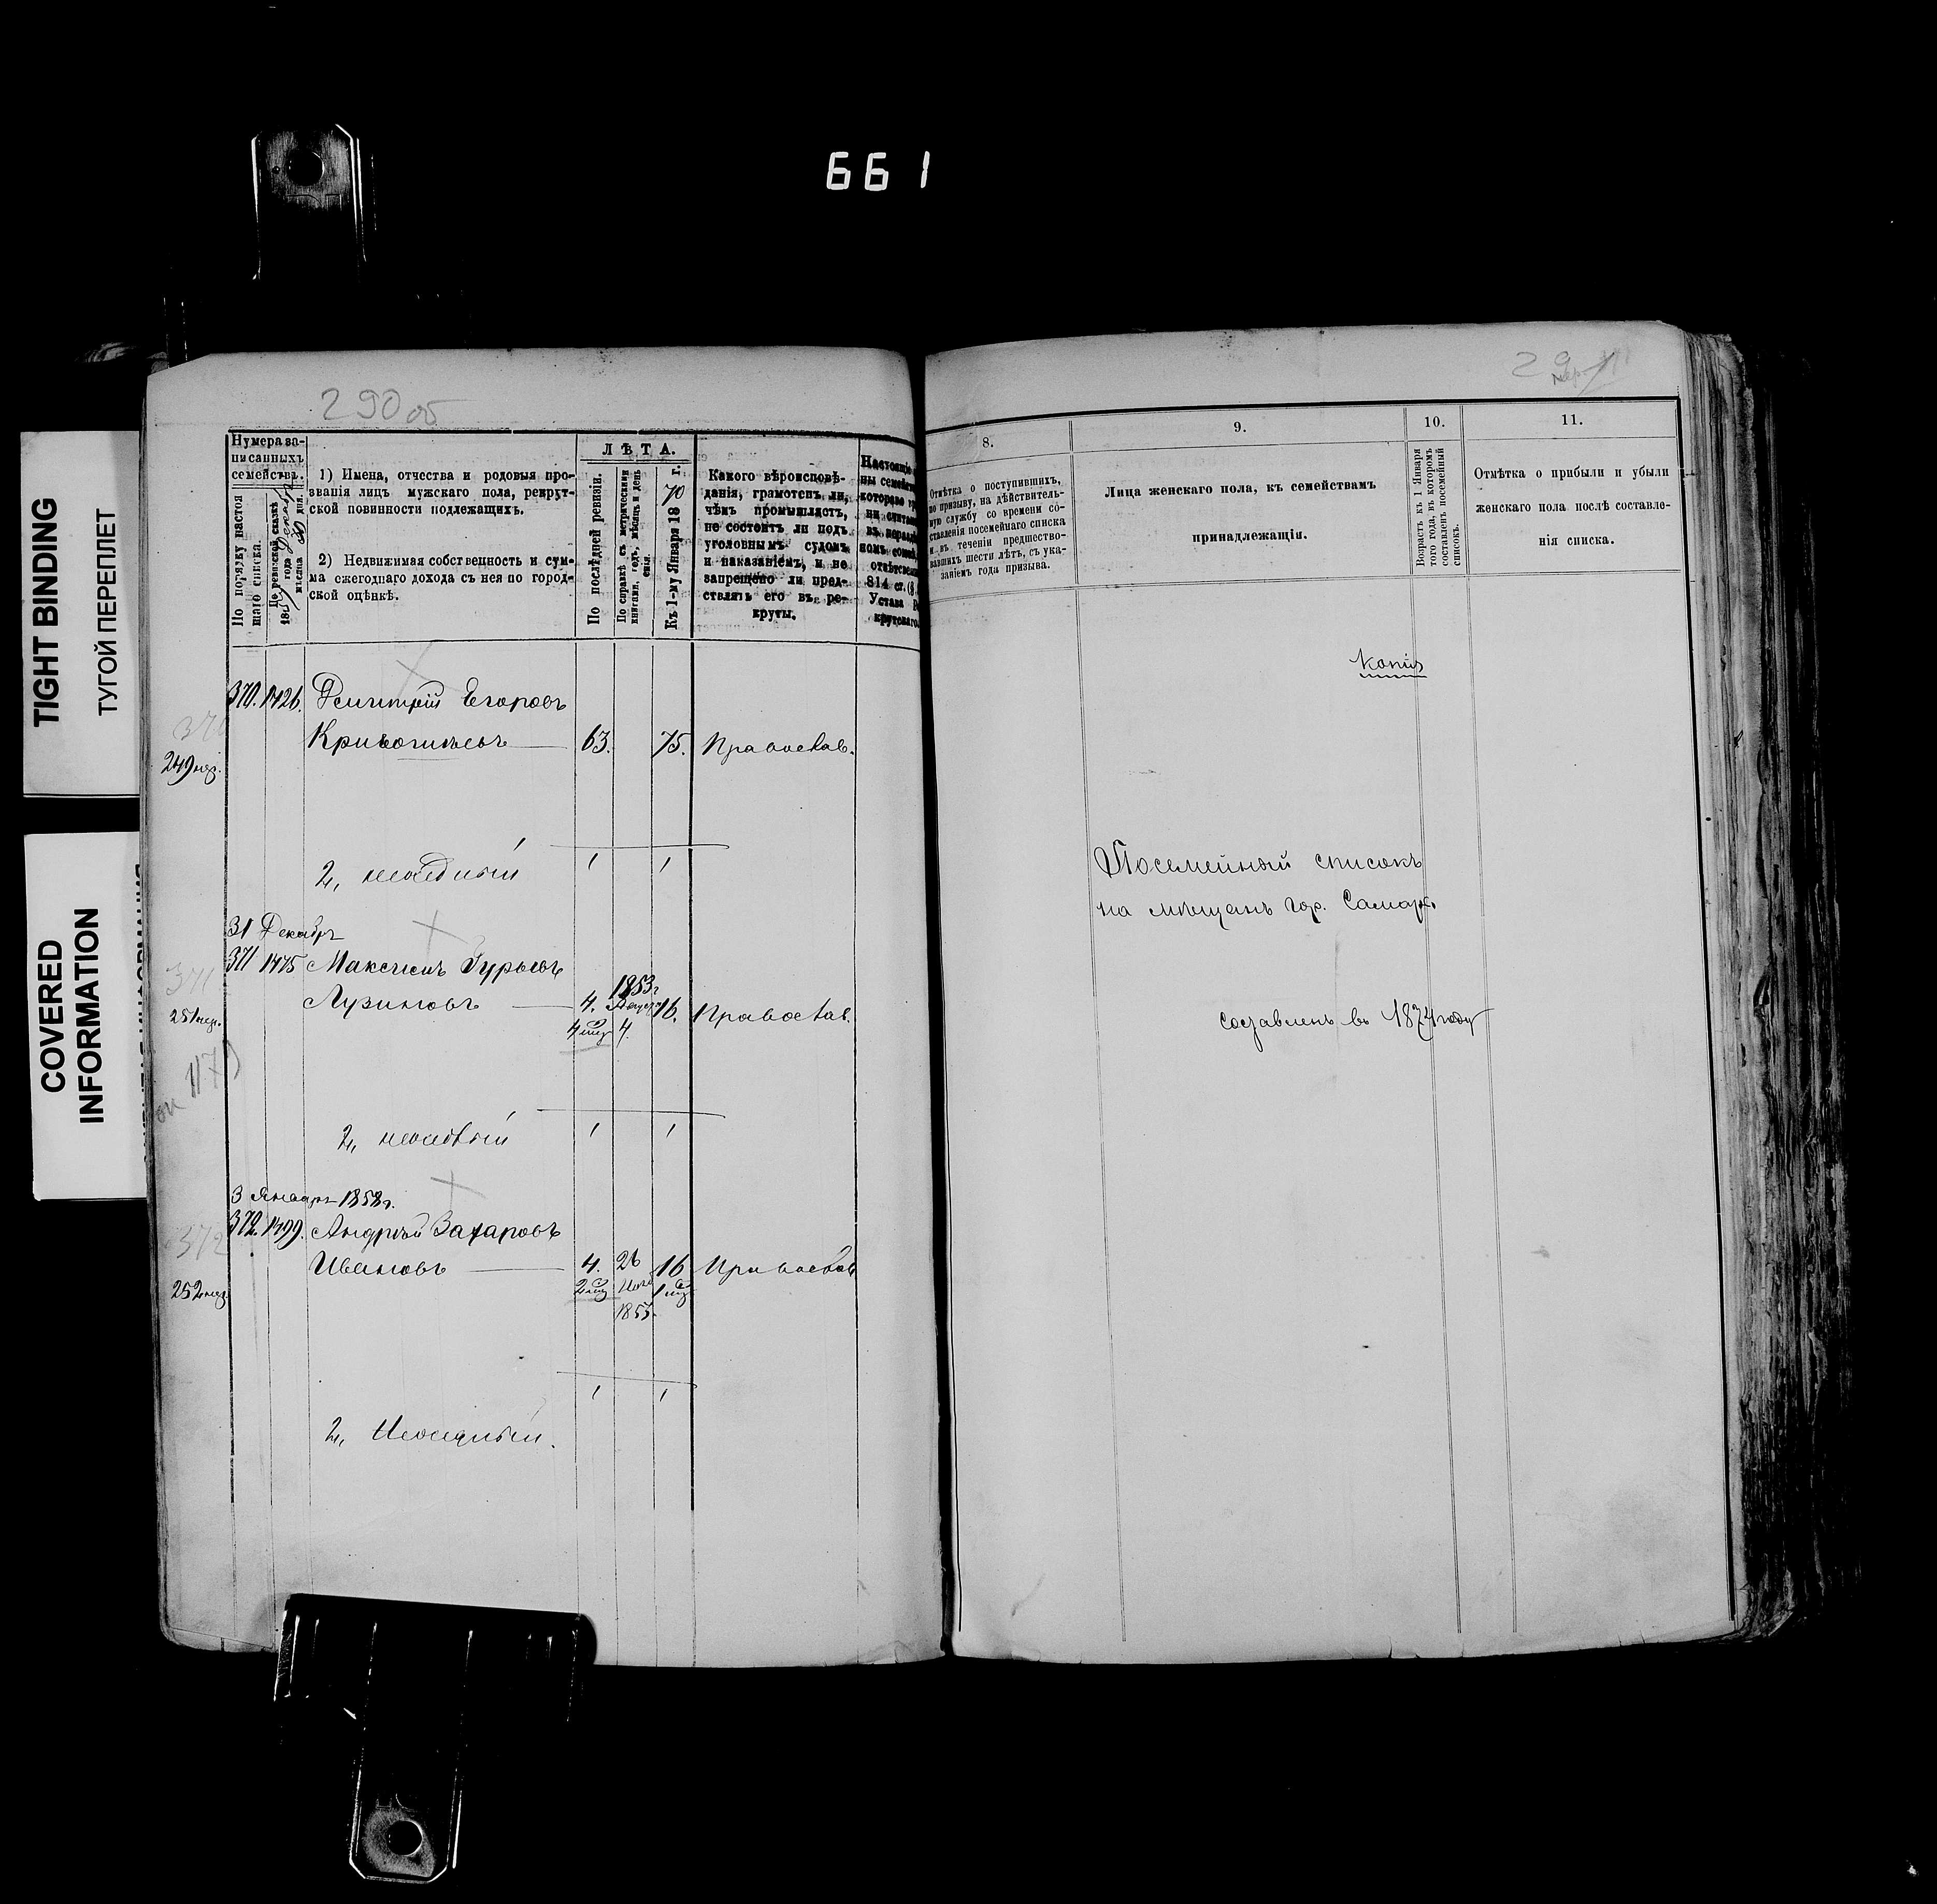 661
TIGHT BINDING
ТУГОЙ ПЕРЕПЛЕТ
COVERED
INFORMATION
290 об
Нумера за-
писанныхъ
семействъ.
По порядку настоя
щаго списка.
По ревизской сказкѣ
185 года Декабр
мѣсяца дня.
1) Имена, отчества и родовыя про-
званія лицъ мужскаго пола, рекрут-
ской повинности подлежащихъ.
2) Недвижимая собственность и сум-
ма ежегоднаго дохода съ нея по город-
ской оцѣнкѣ.
ЛѢТА.
По послѣдней ревизіи.
По справкѣ съ метрическими
книгами, годъ, мѣсяцъ и день
Къ 1-му Января 1870 г.
Какого вѣроисповѣ-
данія, грамотенъ ли,
чѣмъ промышляетъ,
не состоитъ ли подъ
уголовнымъ судомъ
и наказаніемъ, и не
запрещено ли пред-
ставлять его въ ре-
круты.
814 ст.
Устава
370. 1426. Дмитрій Егоровъ
249 чер.
63. 75. Православ.
2, неосѣдлый
1 1
31 Декабр
371 1475 Максимъ Гурьевъ
Лузиновъ 4. 1853 г. 16. Православ.
371
251 чер.
4 4.
2, неосѣдлый
1 1
3 Января 1858 г.
372. 1499. Андрей Захаровъ
Ивановъ 4. 26 16 Православ
372
252 чер.
1853.
1 1
2, Неосѣдлый.
8.
Отмѣтка о поступившихъ,
по призыву, на дѣйствитель-
ную службу со времени со-
ставленія посемейнаго списка
и въ теченіи предшество-
вавшихъ шести лѣтъ, съ ука-
заніемъ года призыва.
9.
Лица женскаго пола, къ семействамъ
принадлежащія.
10.
Возрасть къ 1 Января
того года, въ которомъ
составленъ посемейный
списокъ.
11.
Отмѣтка о прибыли и убыли
женскаго пола послѣ составле-
нія списка.
Копія
Посемейный списокъ
на мѣщанъ гор. Самар.
составленъ въ 1874 году